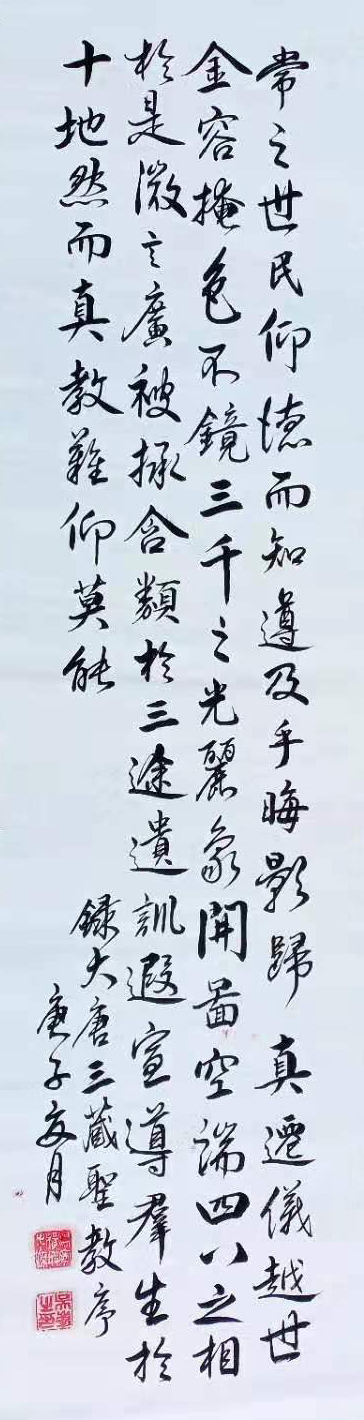 常之世民仰德而知遵及乎晦影歸真遷儀越世
金容掩色不鏡三千之光麗象開啚空端四八之相
於是微言廣被拯含類於三途遺訓遐宣導羣生於
十地然而真教難仰莫能
録大唐三藏聖教序
庚子亥月